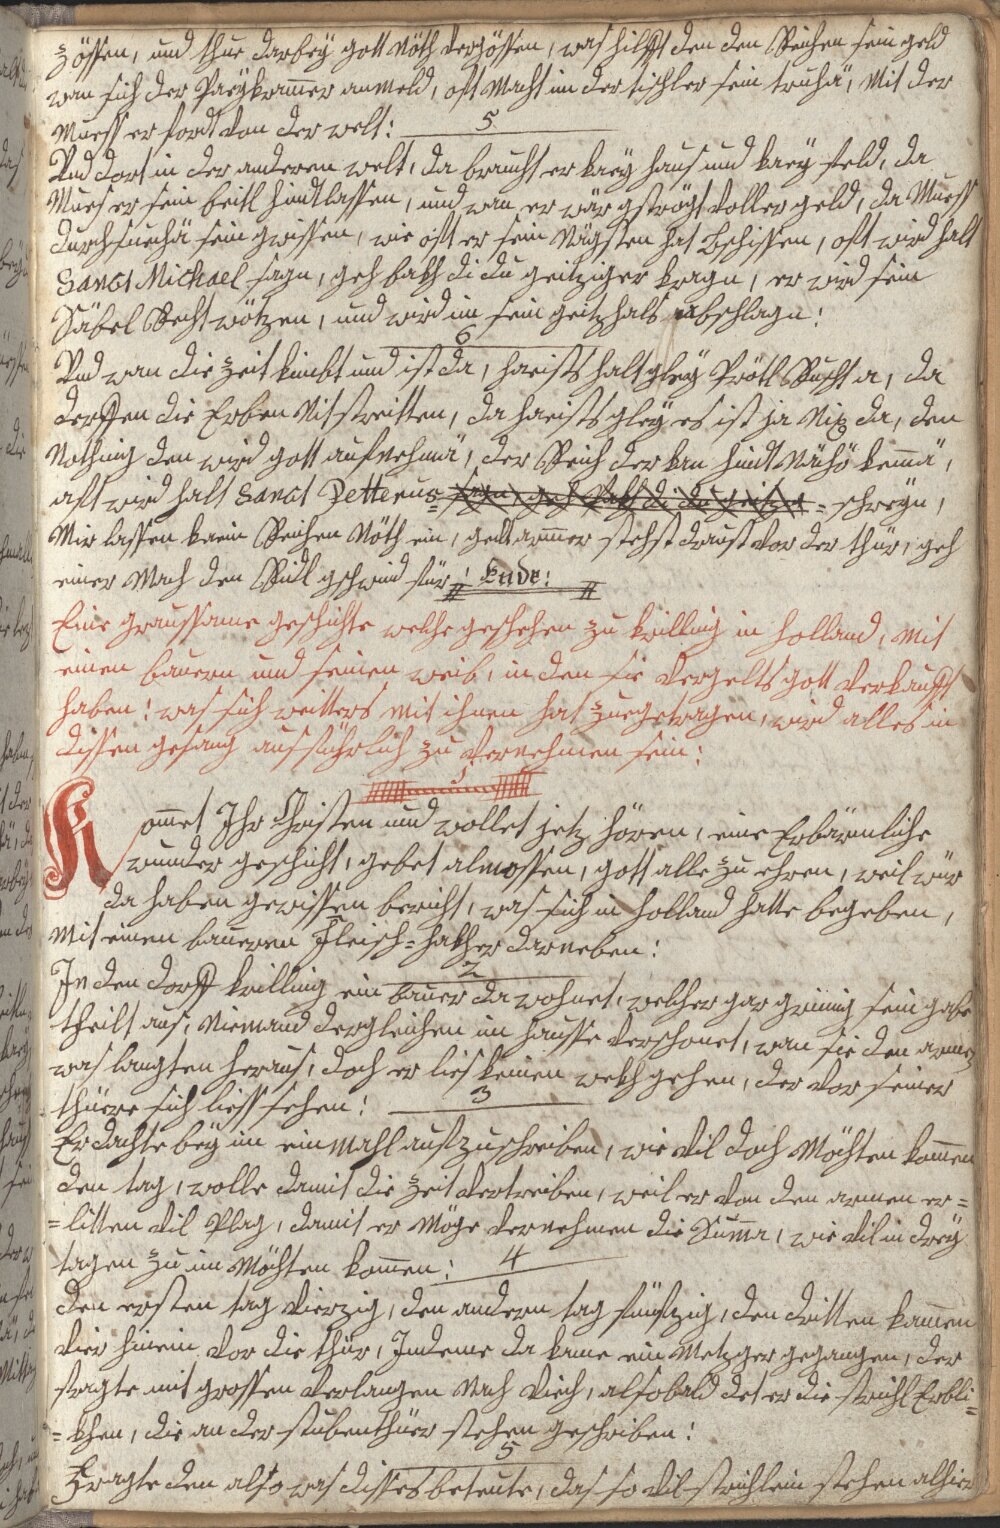 zössen, und thue darbey gott Nöth vergössen, was hilfft den den Reichen sein geld
wan sich der Paeÿkramer anmeld, oft Macht im der tischler sein truchä, Mit der
Muess er fordt von der welt:
5
Und dort in der anderen welt, da braucht er kaeÿ haus und kaeÿ feld, da
Mues er sein beitl hindlassen, und wan er wär gströgt voller geld, da Muess
durchsuechä sein gwissen, wie oft er sein Nägsten hat bschissen, oft wird halt
Sanct Michael sagn, geh bakh di du geitziger kragn, er wird sein
Säbel Recht wötzen, und wird im sein geitzhals abschlagn:
6
Und wan die zeit kimbt und ist da, haeists halt gleÿ Prötl Rucht a, da
derffen die Erben Nit streitten, da haeists gleÿ es ist ja Nix da, den
Nothing den wird gott aufnehmä, der Reich der kan hindt Nähö kemä,
aft wird halt Sanct Petterus = sagn, geh bakh di du geitzer = schreÿn,
Mir lassen kaein Reichen Nöth ein, gelt armer stehst draust vor der thür, geh
einer Mach den Ridl gschwind für: Ende:
Eine graussame geschichte welche geschehen zu krilling in holland, Mit
einen bauern und seinen weib, in den sie vergelts gott verkaufft
haben: was sich weitters Mit ihnen hat zuegetragen, wird alles in
dissen gesang ausführlich zu vernehmen sein:
1
Komet Ihr Christen und wollet jetz hören, eine Erbärmliche
wunder geschicht, gebet almossen, gott alle zu ehren, weil wür
da haben gewissen bericht, was sich in holland hatte begeben,
Mit einen baueren Fleisch=hakher darneben:
2
In den dorff krilling ein bauer da wohnet, welcher gar grimig sein gabe
theilt aus, Niemand dergleichen im hausse verschonet, wan sie den armen
was langten heraus, doch er lies keinen wekh gehen, der vor seiner
thüere sich liess sehen:
3
Er dachte beÿ im ein mahl aufzuschreiben, wie vil doch Möchten komen
den tag, wolle damit die zeit vertreiben, weil er von den armen er=
=litten vil Plag, damit er Möge vernehmen die Suma, wie vil in dreÿ
tagen zu im Möchten komen:
4
den ersten tag vierzig, den andern tag fünfzig, den dritten kamen
vier hinein vor die thür, Indeme da kame ein Metzger gegangen, der
fragte mit grossen verlangen Nach viech, alsobald det er die strichl Erbli=
=khen, die an der stubenthüer stehen geschriben:
5
Fragte den also was disses beteute, das so vil strichlein stehen alhier